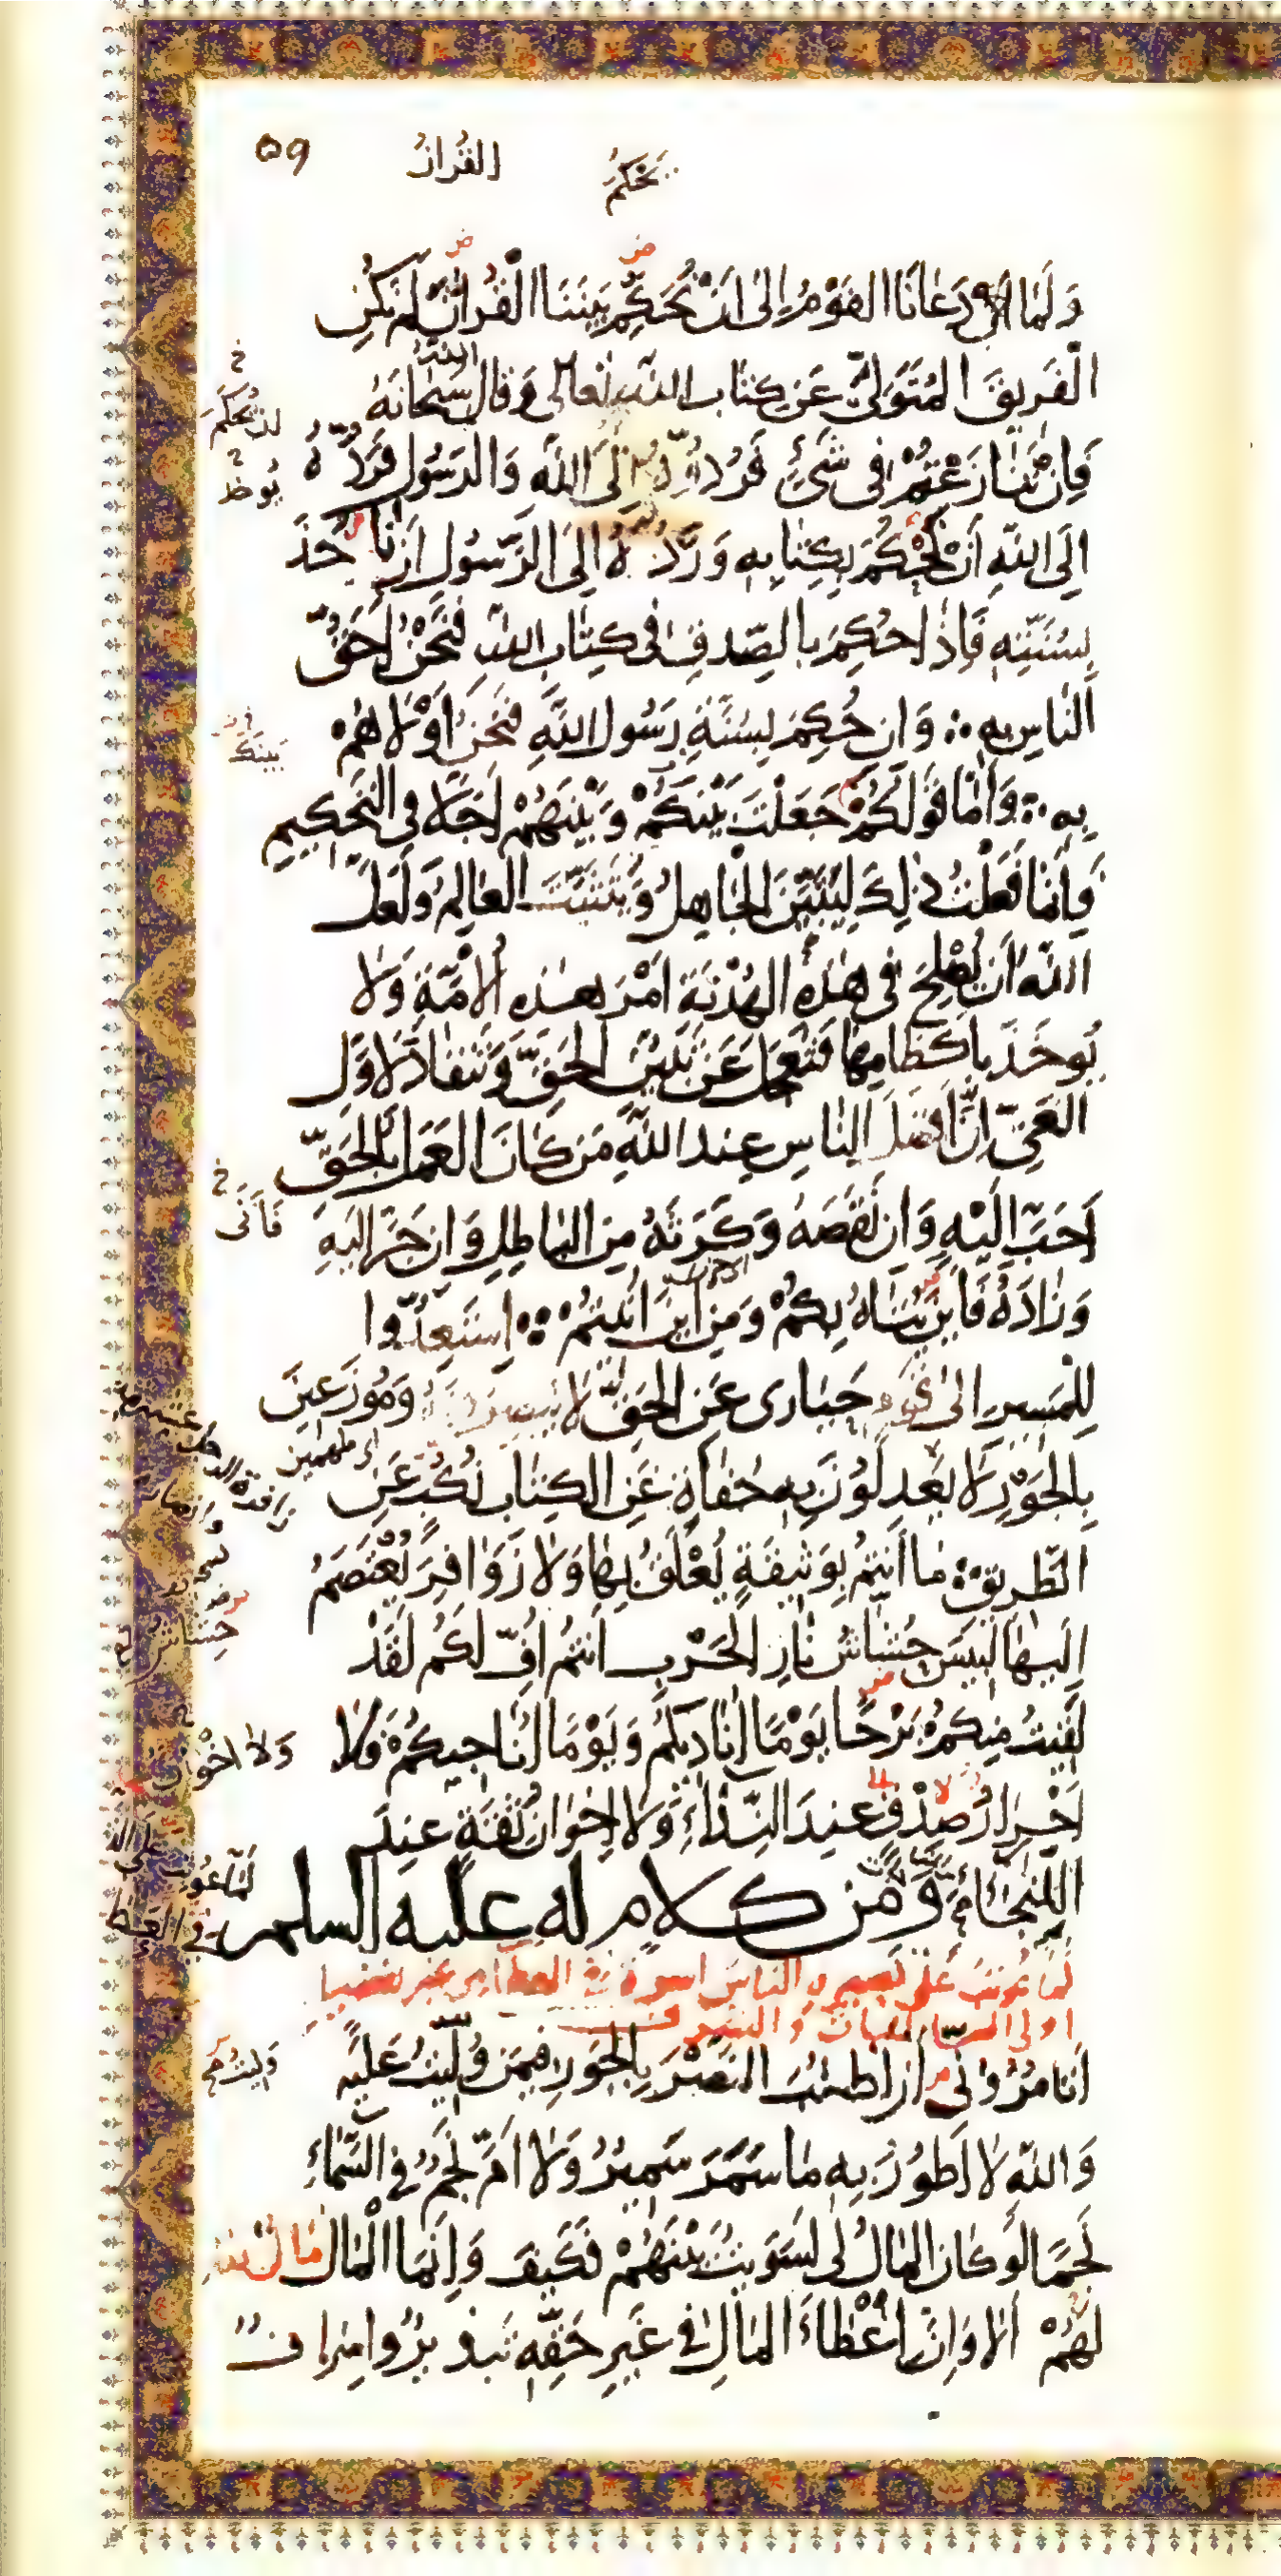 ٥٩
القرآن
يحكم
وَلَمّا أن دَعانَا القَوْمُ إلى أنْ نُحَكِّمَ بَيْنَنَا الْقُرآنَ لم نَكُنِ
الْفَريقَ المُتَوَلّيَ عَن كِتاب اللّه تعالى وَقال اللّه سُبحانَهُ
فَإن تَنازَعْتُمْ في شَيْءٍ فَرُدّوهُ إلَى اللّهِ وَالرَسُول فَرَدُّهُ
إلَى اللّهِ أنْ نَحْكُمَ بِكِتابِهِ وَرَدُّهُ إلَى الرَّسُولِ أن نَأخُذَ
بِسُنَّتِهِ فَإذا حُكِمَ بالصِّدقِ في كِتاب اللّه فَنَحْنُ أحَقُّ
النّاسِ بِهِ وَإن حُكِمَ بِسُنَّةِ رَسُول اللّهِ فَنَحنُ أوْلاهُمْ
بِهِ وَأمّا قَولكُمْ جَعَلْتَ بَيْنَكُمْ وَبَيْنَهُمْ أجَلاً في التَحكِيمِ
فَإنّما فَعَلْتُ ذلِكَ لِيَتَبَيَّنَ الْجاهِلُ وَيَتَثَبَّتَ العالِمُ وَلَعلّ
اللّهَ أن يُصْلِحَ في هذِهِ الهُدْنَةِ أمْرَ هذِهِ الأمَّةِ وَلا
يُوخَذَ بِأكظامِها فَتَعجَلَ عَن تَبَيُّنِ الحَقِّ وَتَنقادَ لأوّلِ
الغَيِّ إنّ أفضلَ النّاسِ عِند اللّهِ مَن كانَ العَمَل بِالحَقِّ
أحَبَّ إلَيْهِ وَإن نَقَصَهُ وَكَرَثَهُ مِنَ الباطِلِ وَإن جَرّ إلَيهِ
وَزادَهُ فَأينَ يُتاهُ بِكُمْ وَمِن أينَ أُتيتُمْ اِستَعِدُّوا
لِلْمَسِيرِ إلى قَومٍ حَيارى عَنِ الحَقِّ لا يُبصِرونَهُ وَمُوزَعِينَ
بِالجَوْرِ لا يَعدِلُونَ بِهِ جُفاةٍ عَنِ الكِتاب نُكُبٍ عَنِ
الطَّريقِ ما أنتُم بِوَثيقَةٍ يُعْلَقُ بِها وَلا زَوافِرَ يُعْتَصَمُ
إلَيها لَبِيسَ حِشاشُ نارِ الْحَرْبِ أنتُم أُفٍّ لَكُم لَقَدْ
لَقِيتُ مِنكُمْ بَرْحًا يَوْمًا أُنادِيكُمْ وَيَوْمًا أُناجِيكُمْ فَلا
أحْرارُ صِدْقٍ عِندَ النِّداءِ وَلا إخوانُ ثِقَةٍ عِندَ
النَّجاءِ وَمِن كلامٍ له عليه السلم
لمّا عُوتِبَ عَلى تصييره الناس أسوة في العطاء من غير تفضيل
أولى السابقات والشرف
أتَأمُرُونّي أن أطلُبَ النَصْرَ بِالجَورِ فيمَن وُلّيتُ عَلَيْهِ
وَاللّهِ لا أطُورُ بِهِ ما سَمَرَ سَمِيرٌ وَلا أمَّ نَجمٌ في السَّماءِ
نَجمًا لَو كانَ المال لي لَسَوَّيتُ بَيْنَهُمْ فَكَيفَ وَإنّما الْمال مالُ اللّه
لَهُمْ ألا وَإنّ إعْطاءَ المال في غَيرِ حَقِّهِ تَبذيرٌ وَإسراف
لن نُحكم
يُوخذ
بينك
فَأنّى
أي ملهمين
حشاش
وَلا إخْوان
لمّا عُوتِبَ على
في العطا
وليتُ